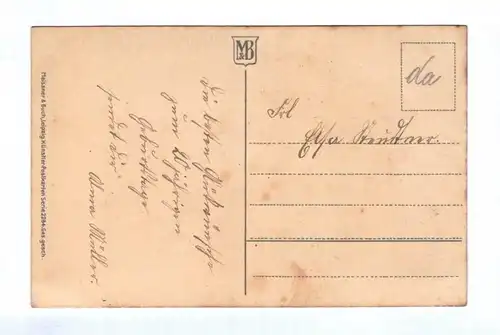 Meissner & Buch, Leipzig. Künstler-Postkarten Serie 2284. Ges. gesch.
M&B
da
Frl
Elsa
die besten Glückwünsche
zum 20 jährigen
Geburtstage
sendet dir
Anna Müller.